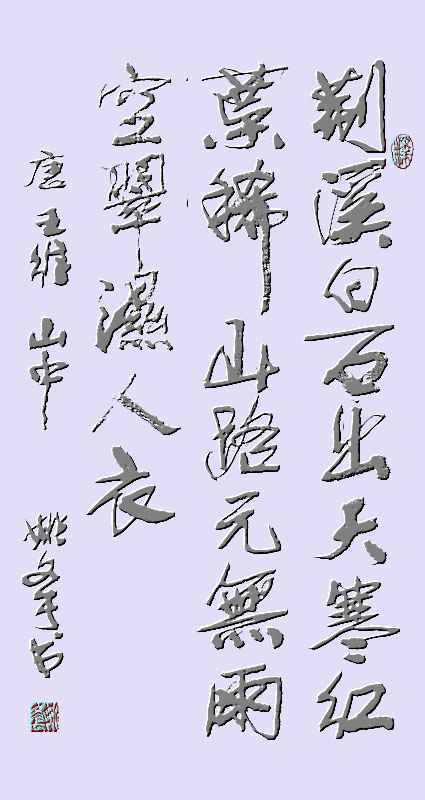 荆溪白石出天寒紅
葉稀山路元無雨
空翠濕人衣
唐 王維 山中 姚 书